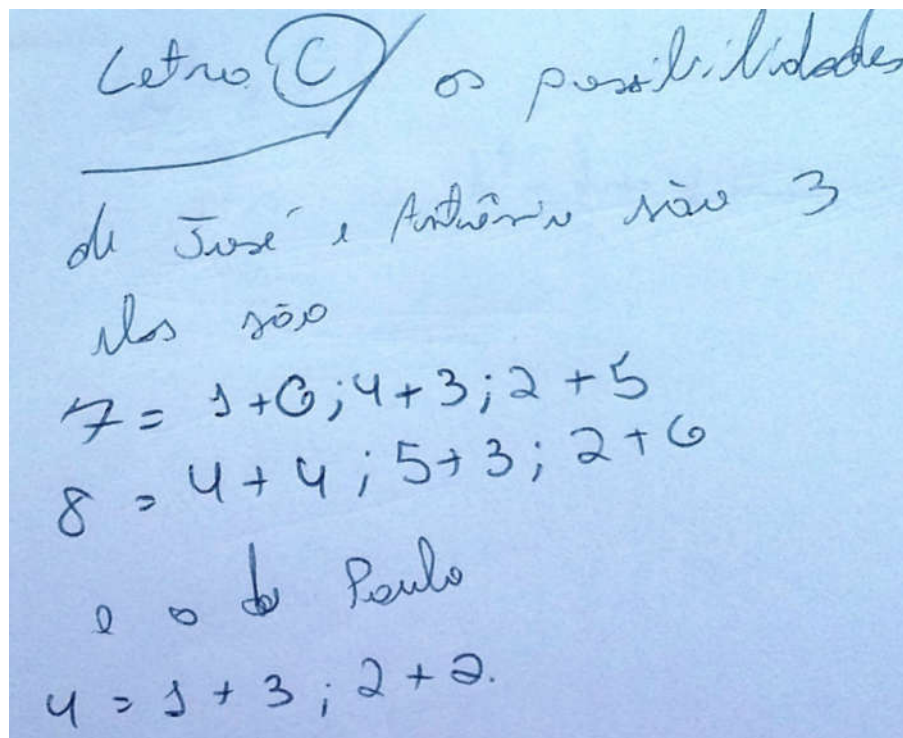 Letra C os possibilidades
de José e Antônio são 3
elas são
7 = 1+6; 4+3; 2+5
8 = 4+4; 5+3; 2+6
e o de Paulo
4 = 1+3; 2+2.